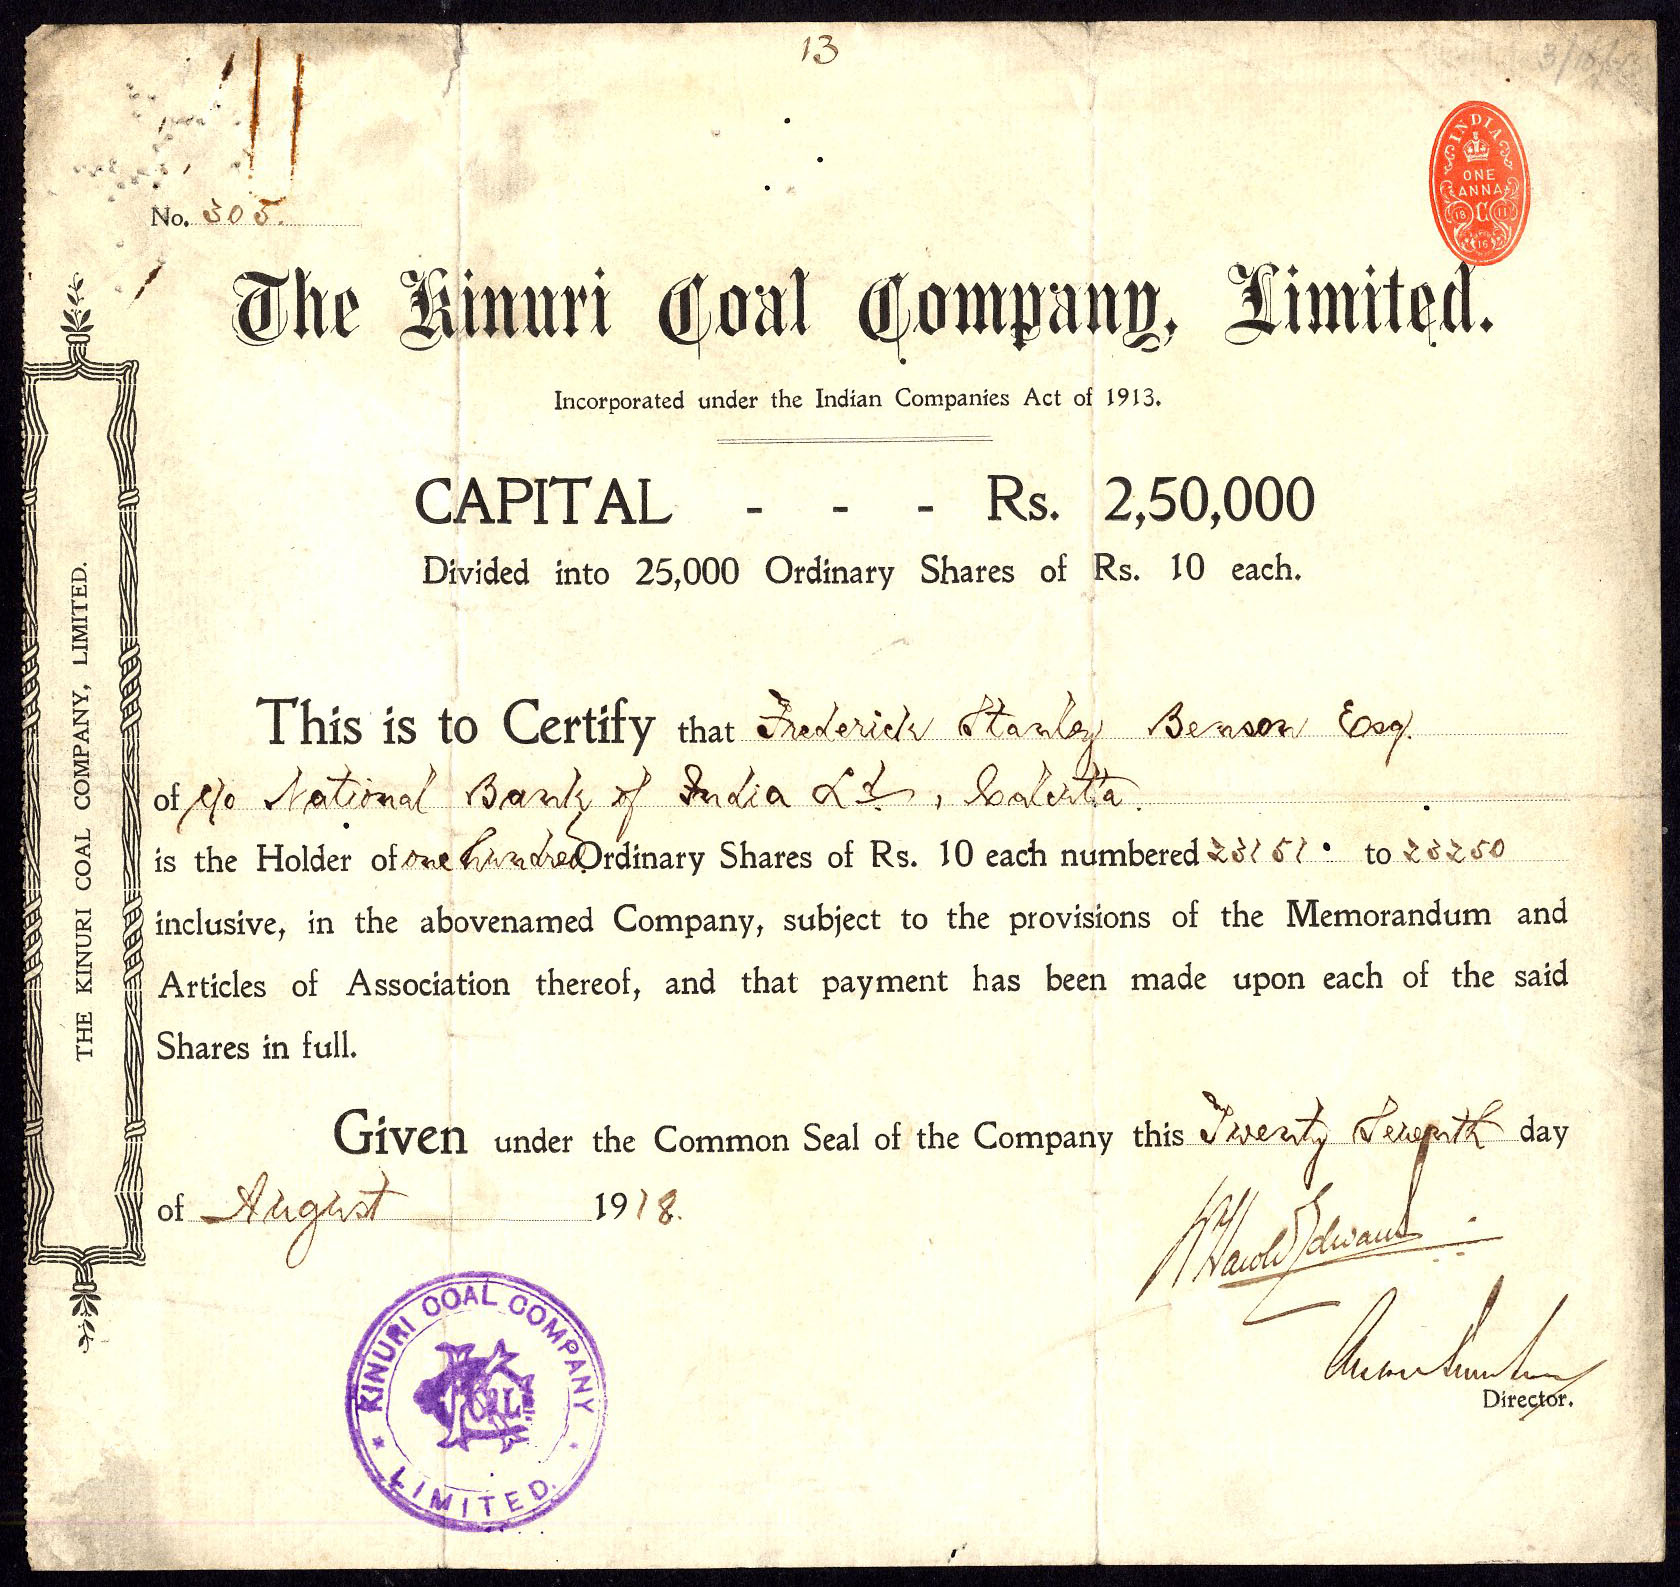 13
3/10/
INDIA
ONE
ANNA
18 C 11
16
No. 305.
The Kinuri Coal Company, Limited.
Incorporated under the Indian Companies Act of 1913.
CAPITAL - - - Rs. 2,50,000
Divided into 25,000 Ordinary Shares of Rs. 10 each.
This is to Certify that Frederick Stanley Benson Esq.
of c/o National Bank of India Ld, Calcutta.
is the Holder of one hundred Ordinary Shares of Rs. 10 each numbered 23151 to 23250
inclusive, in the abovenamed Company, subject to the provisions of the Memorandum and
Articles of Association thereof, and that payment has been made upon each of the said
Shares in full.
Given under the Common Seal of the Company this Twenty Seventh day
of August 1918.
Harold Edwards
Director.
KINURI COAL COMPANY
LIMITED.
THE KINURI COAL COMPANY, LIMITED.